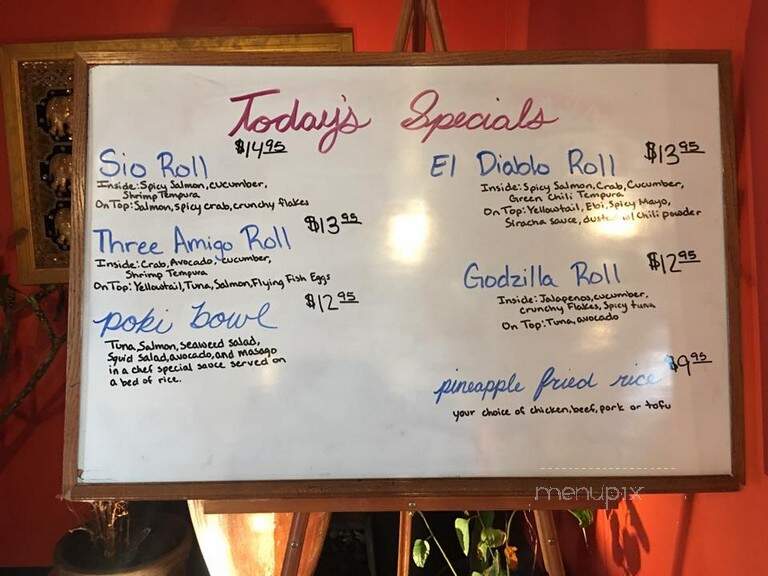 Today's Specials
Sio Roll $14.95
Inside: Spicy Salmon, cucumber,
Shrimp Tempura
On Top: Salmon, spicy crab, crunchy flakes
Three Amigo Roll $13.95
Inside: Crab, Avocado, cucumber,
Shrimp Tempura
On Top: Yellowtail, Tuna, Salmon, Flying Fish Eggs
poki bowl $12.95
Tuna, Salmon, seaweed salad,
Squid salad, avocado, and masago
in a chef special sauce served on
a bed of rice.
El Diablo Roll $13.95
Inside: Spicy Salmon, Crab, Cucumber,
Green Chili Tempura
On Top: Yellowtail, Ebi, Spicy Mayo,
Siracha sauce, dusted w/ Chili powder
Godzilla Roll $12.95
Inside: Jalapenos, cucumber,
crunchy Flakes, Spicy tuna
On Top: Tuna, avocado
pineapple fried rice $9.95
your choice of chicken, beef, pork or tofu
menupix